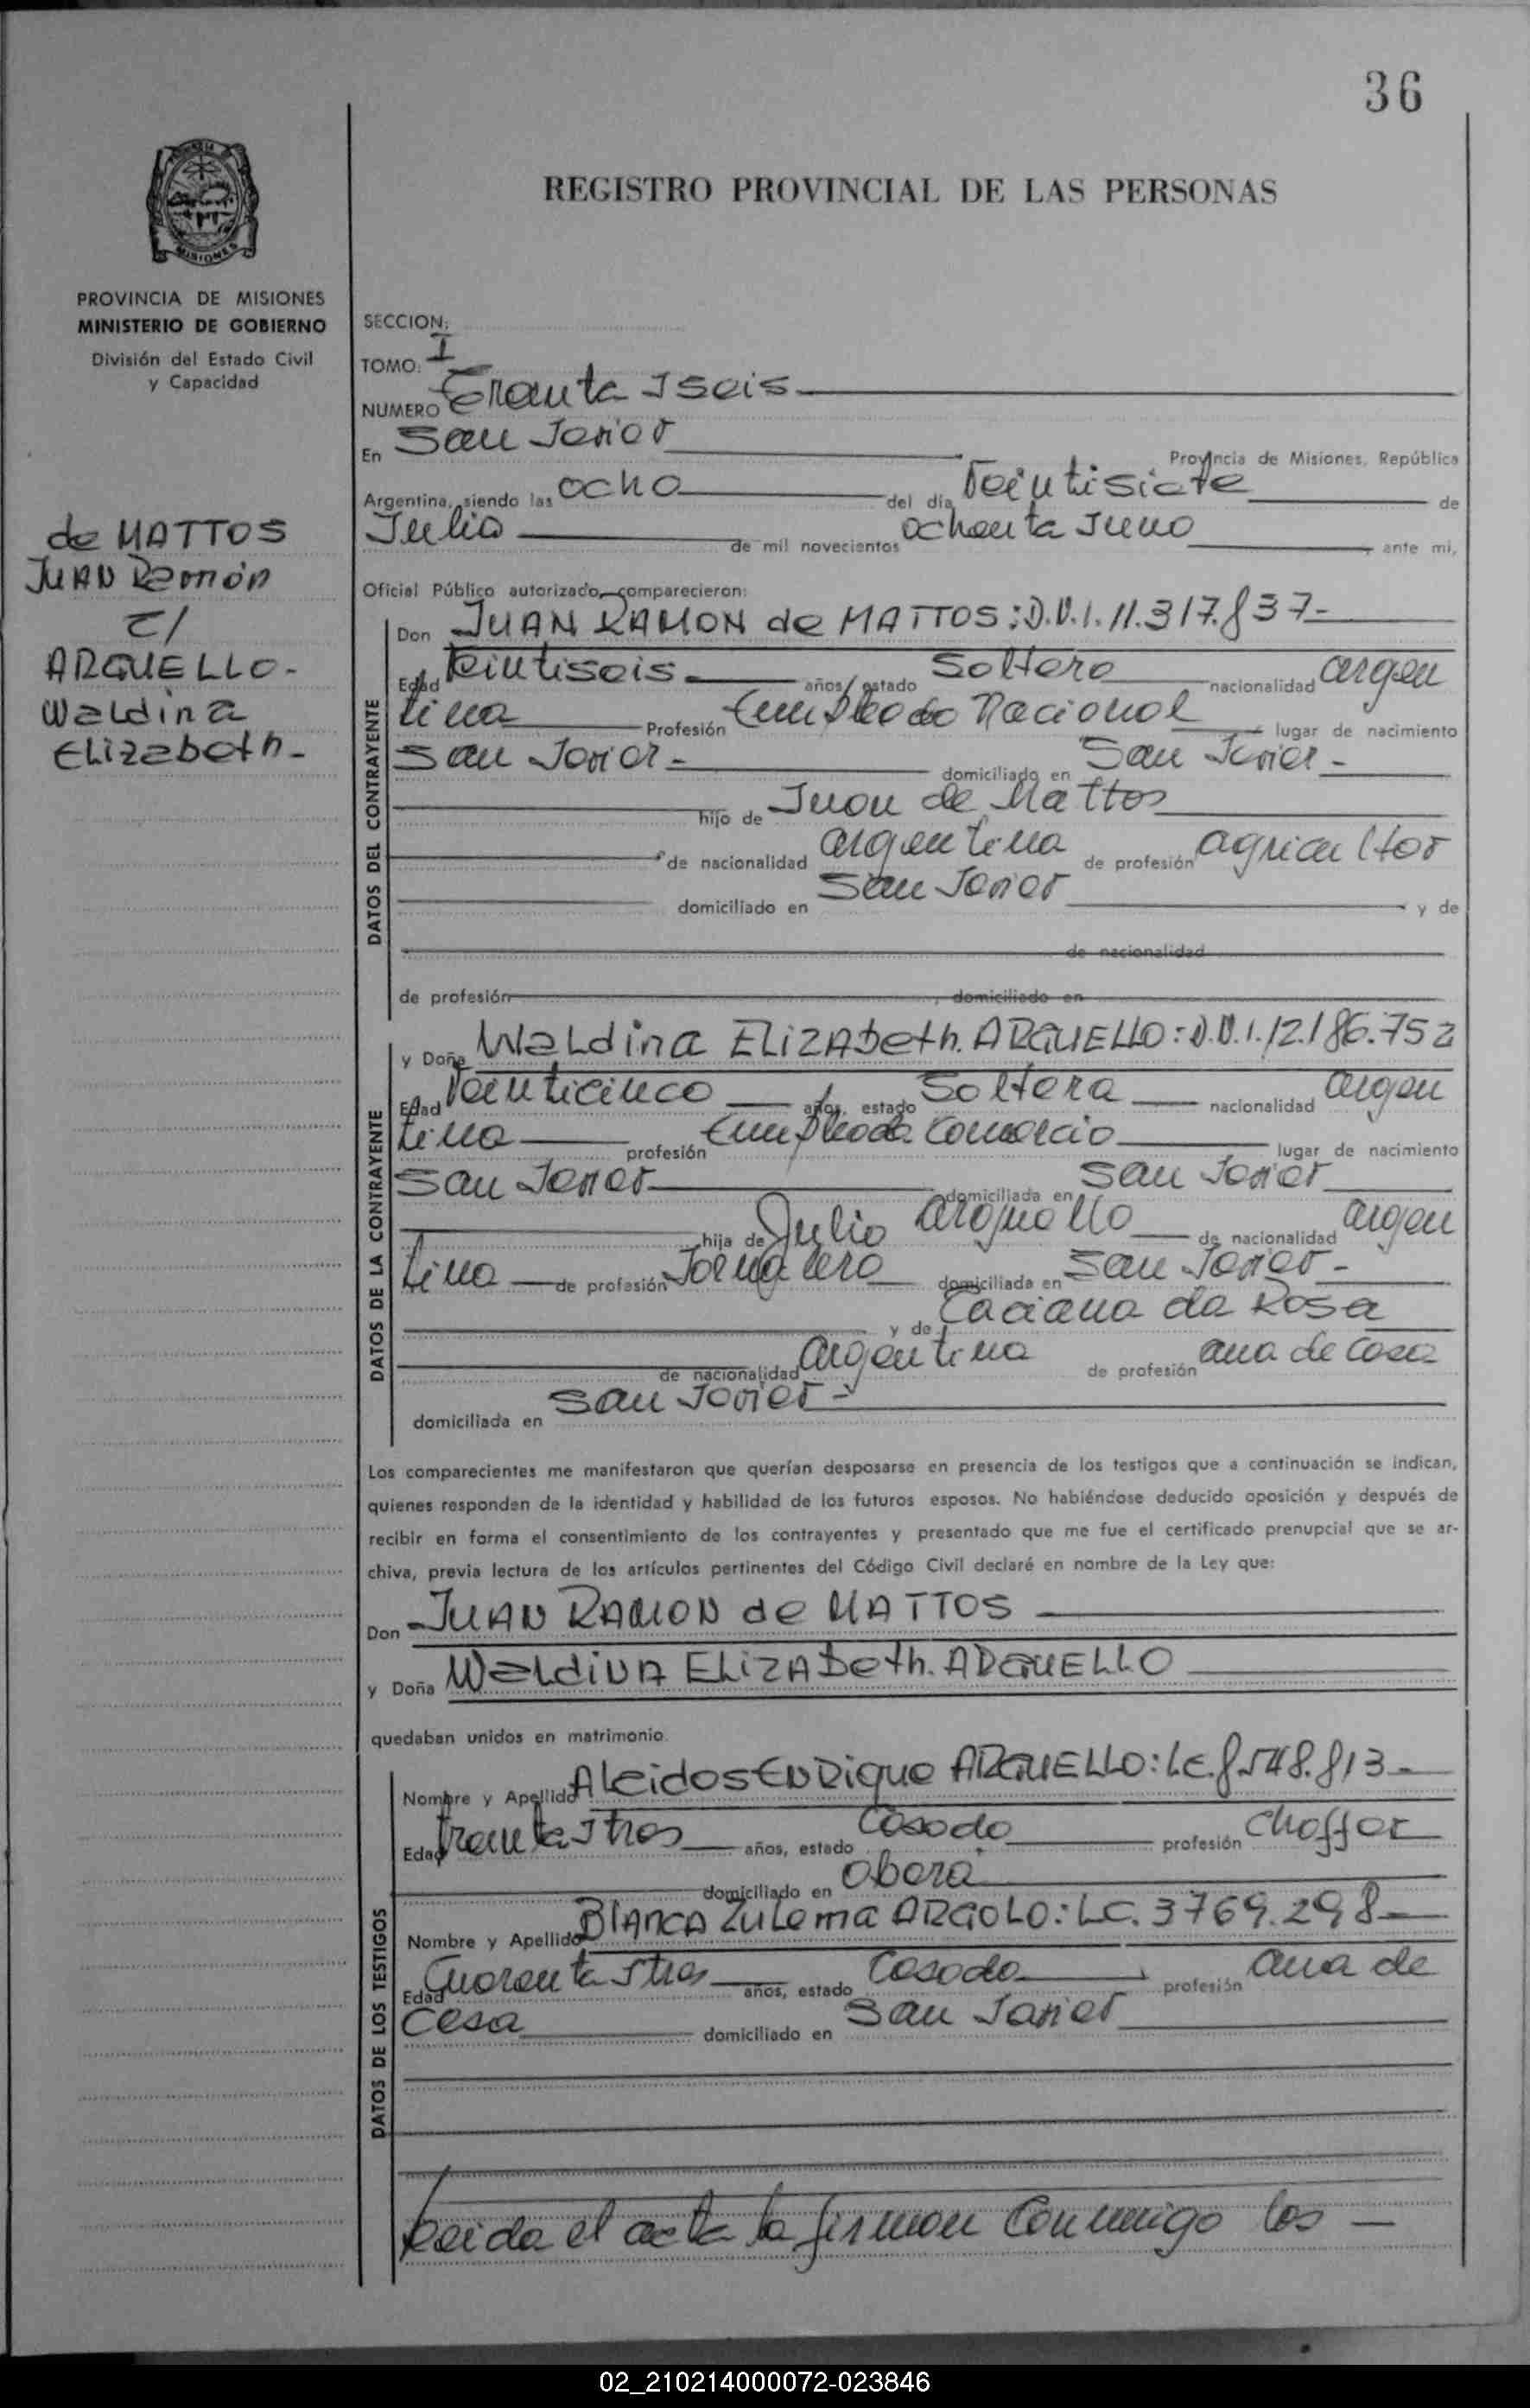 36
REGISTRO PROVINCIAL DE LAS PERSONAS
MISIONES
PROVINCIA DE MISIONES
MINISTERIO DE GOBIERNO
División del Estado Civil
y Capacidad
de MATTOS
JUAN Ramón
c/
ARGUELLO-
Waldina
Elizabeth-
SECCION:
TOMO: I
NUMERO Treinta y seis
En San Javier Provincia de Misiones, República
Argentina, siendo las ocho del día Veintisiete de
Julio de mil novecientos ochenta y uno ante mi,
Oficial Público autorizado, comparecieron:
DATOS DEL CONTRAYENTE
Don JUAN RAMON de MATTOS: D.N.I. 11.317.837-
Edad Veintiseis años, estado Soltero nacionalidad argen
tina Profesión Empleado Nacional lugar de nacimiento
San Javier- domiciliado en San Javier-
hijo de Juan de Mattos
de nacionalidad argentina de profesión agricultor
domiciliado en San Javier y de
de nacionalidad
de profesión , domiciliado en
DATOS DE LA CONTRAYENTE
y Doña Waldina ELIZABeth. ARGUELLO: D.N.I. 12.186.752
Edad Veinticinco años, estado Soltera nacionalidad argen
tina profesión Empleada Comercio lugar de nacimiento
San Javier domiciliada en San Javier
hija de Julio Arguello de nacionalidad argen
tina de profesión Jornalero domiciliada en San Javier-
y de Taciana da Rosa
de nacionalidad argentina de profesión ama de casa
domiciliada en San Javier-
Los comparecientes me manifestaron que querían desposarse en presencia de los testigos que a continuación se indican,
quienes responden de la identidad y habilidad de los futuros esposos. No habiéndose deducido oposición y después de
recibir en forma el consentimiento de los contrayentes y presentado que me fue el certificado prenupcial que se ar-
chiva, previa lectura de los artículos pertinentes del Código Civil declaré en nombre de la Ley que:
Don JUAN RAMON de MATTOS
y Doña WaLdiNA ELIZABeth. ARGUELLO
quedaban unidos en matrimonio.
DATOS DE LOS TESTIGOS
Nombre y Apellido Aleidos ENRique ARGUELLO: L.E. 8.548.813-
Edad Treinta y tres años, estado Casado profesión Choffer
domiciliado en Oberá
Nombre y Apellido BlANCA Zulema ARGOLO: L.C. 3769.298-
Edad Cuarenta y tres años, estado Casada profesión ama de
casa domiciliado en San Javier
Leida el acta la firman Conmigo los -
02_210214000072-023846